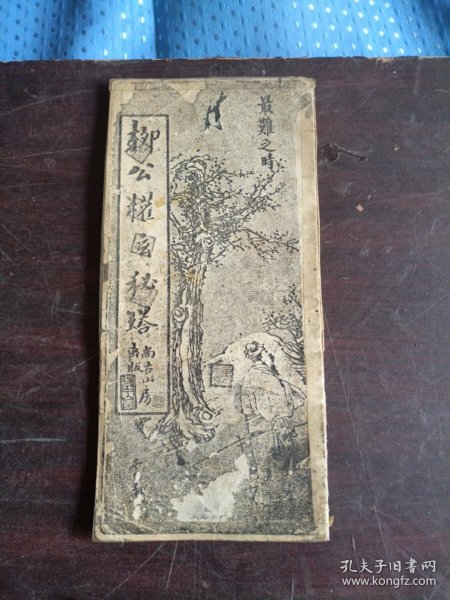 最難之時
柳公權玄秘塔
尚古山房
出版
孔夫子旧书网
www.kongfz.com